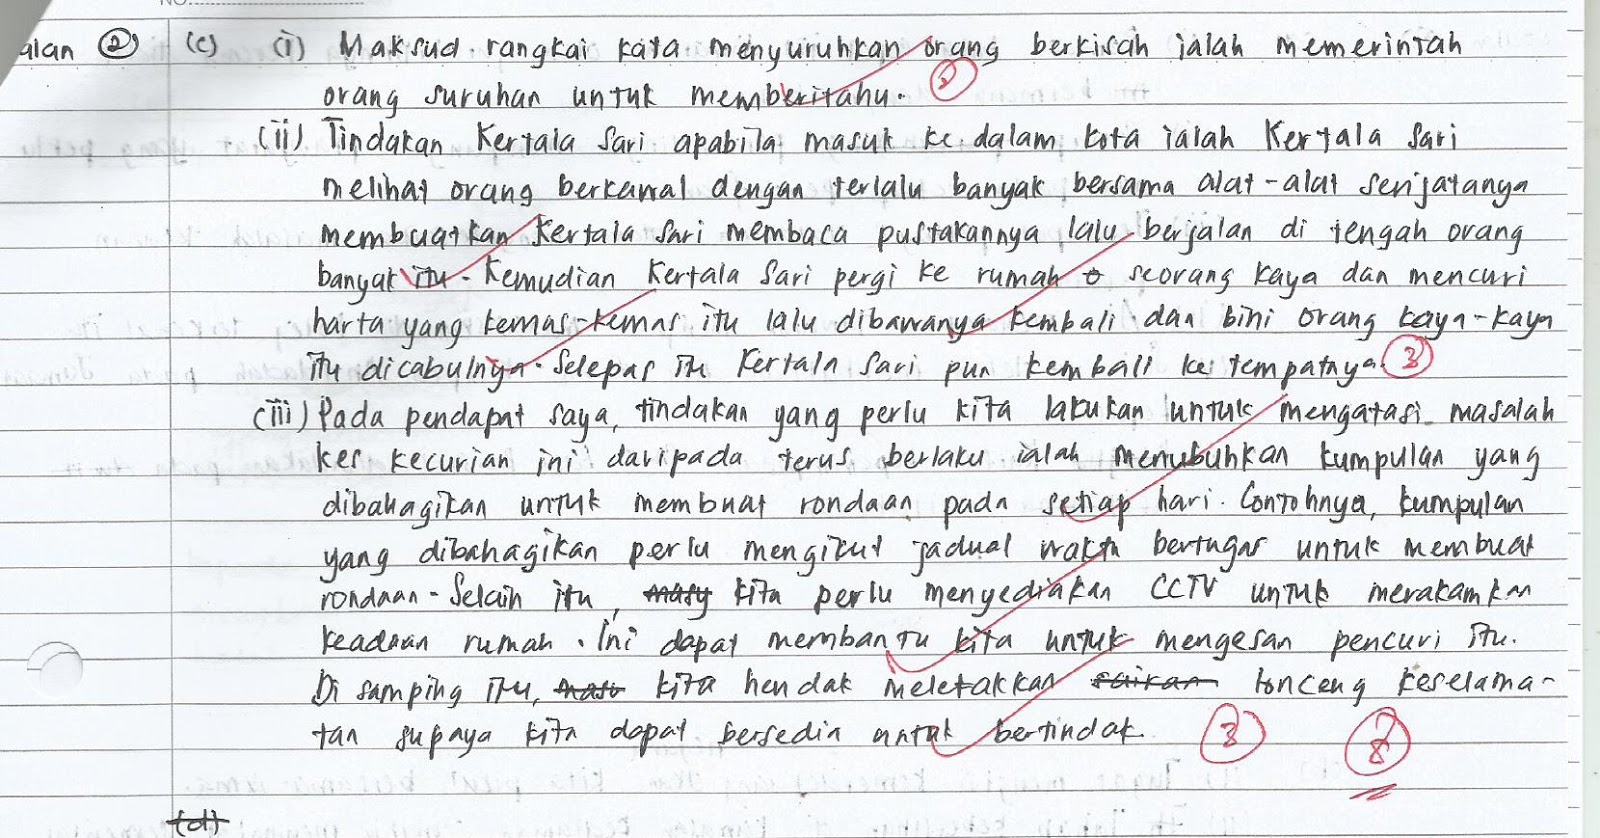 NO.
alan 2 (c) (i) Maksud rangkai kata menyuruhkan orang berkisah ialah memerintah
orang suruhan untuk memberitahu. 2
(ii) Tindakan Kertala Sari apabila masuk ke dalam kota ialah Kertala Sari
melihat orang berkawal dengan terlalu banyak bersama alat-alat senjatanya
membuatkan Kertala Sari membaca pustakannya lalu berjalan di tengah orang
banyak itu. Kemudian Kertala Sari pergi ke rumah seorang kaya dan mencuri
harta yang kemas-kemas itu lalu dibawanya kembali dan bini orang kaya-kaya
itu dicabulnya. Selepas itu Kertala Sari pun kembali ke tempatnya. 3
(iii) Pada pendapat saya, tindakan yang perlu kita lakukan untuk mengatasi masalah
kes kecurian ini daripada terus berlaku ialah menubuhkan kumpulan yang
dibahagikan untuk membuat rondaan pada setiap hari. Contohnya, kumpulan
yang dibahagikan perlu mengikut jadual waktu bertugas untuk membuat
rondaan. Selain itu, kita perlu menyediakan CCTV untuk merakamkan
keadaan rumah. Ini dapat membantu kita untuk mengesan pencuri itu.
Di samping itu, kita hendak meletakkan lonceng keselama-
tan supaya kita dapat bersedia untuk bertindak. 3 8
(d)